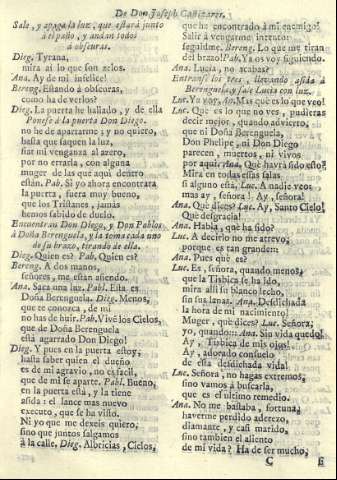 De Don Joseph Cañizares.
Sale, y apaga la luz, que estará junto
à el paño, y andan todos
à obscuras.
Dieg. Tyrana,
mira aì lo que son zelos.
Ana. Ay de mi infelice!
Bereng. Estando à obscuras,
como ha de verlos?
Dieg. La puerta he hallado, y de ella
Ponese à la puerta Don Diego.
no he de apartarme; y no quiero,
hasta que saquen la luz,
fiar mi venganza al azero,
por no errarla, con alguna
muger de las que aquì dentro
estàn. Pab. Si yo ahora encontrara
la puerta, fuera muy bueno,
que los Tristanes, jamàs
hemos sabido de duelo.
Encuentran Don Diego, y Don Pablos
à Doña Berenguela, y la toma cada uno
de su brazo, tirando de ella.
Dieg. Quien es? Pab. Quien es?
Bereng. A dos manos,
señores, me estàn asiendo.
Ana. Saca una luz. Pabl. Esta es
Doña Berenguela. Dieg. Menos,
que te conozca, de mi
no has de huir. Pab. Vive los Cielos,
que de Doña Berenguela
està agarrado Don Diego!
Dieg. Y pues en la puerta estoy,
hasta saber quien el dueño
es de mi agravio, no es facil,
que de mi se aparte. Pabl. Bueno,
en la puerta està, y la tiene
asida: el lance mas nuevo
executo, que se ha visto.
Ni yo que me dexeis quiero,
sino que juntos salgamos
à la calle. Dieg. Albricias, Cielos,
que he encontrado à mi enemigo!
Salir à vengarme intento:
seguidme. Bereng. Lo que me tiran
del brazo! Pab. Ya os voy siguiendo.
Ana. Lucia, no acabas?
Entranse los tres, llevando asida à
Berenguela, y sale Lucia con luz.
Luc. Ya voy. An. Mas què es lo que veo!
Luc. Què es lo que no ves, pudieras
decir mejor, quando advierto,
que ni Doña Berenguela,
Don Phelipe, ni Don Diego
parecen, muertos, ni vivos
por aquì. Ana. Què havrà sido esto?
Mira en todas essas salas
si alguno està. Luc. A nadie veo;
mas ay, señora! Ay, señora!
Ana. Què dices? Luc. Ay, Santo Cielo!
Què desgracia!
Ana. Habla, què ha sido?
Luc. A decirlo no me atrevo,
porque es tan grande::-
Ana. Pues què es?
Luc. Es, señora, quando menos,
que la Tisbica se ha ido,
mira allì su blanco lecho,
sin sus lanas. Ana. Desdichada
la hora de mi nacimiento!
Muger, què dices? Luc. Señora,
yo, quando::- Ana. Sin vida quedo!
Ay, Tisbica de mis ojos!
Ay, adorado consuelo
de esta desdichada vida!
Luc. Señora, no hagas extremos,
sino vamos à buscarla,
que es el ultimo remedio.
Ana. No me bastaba, fortuna,
haverme perdido aderezo,
diamante, y casi marido,
sino tambien el aliento
de mi vida? Ha de ser mucho,
C